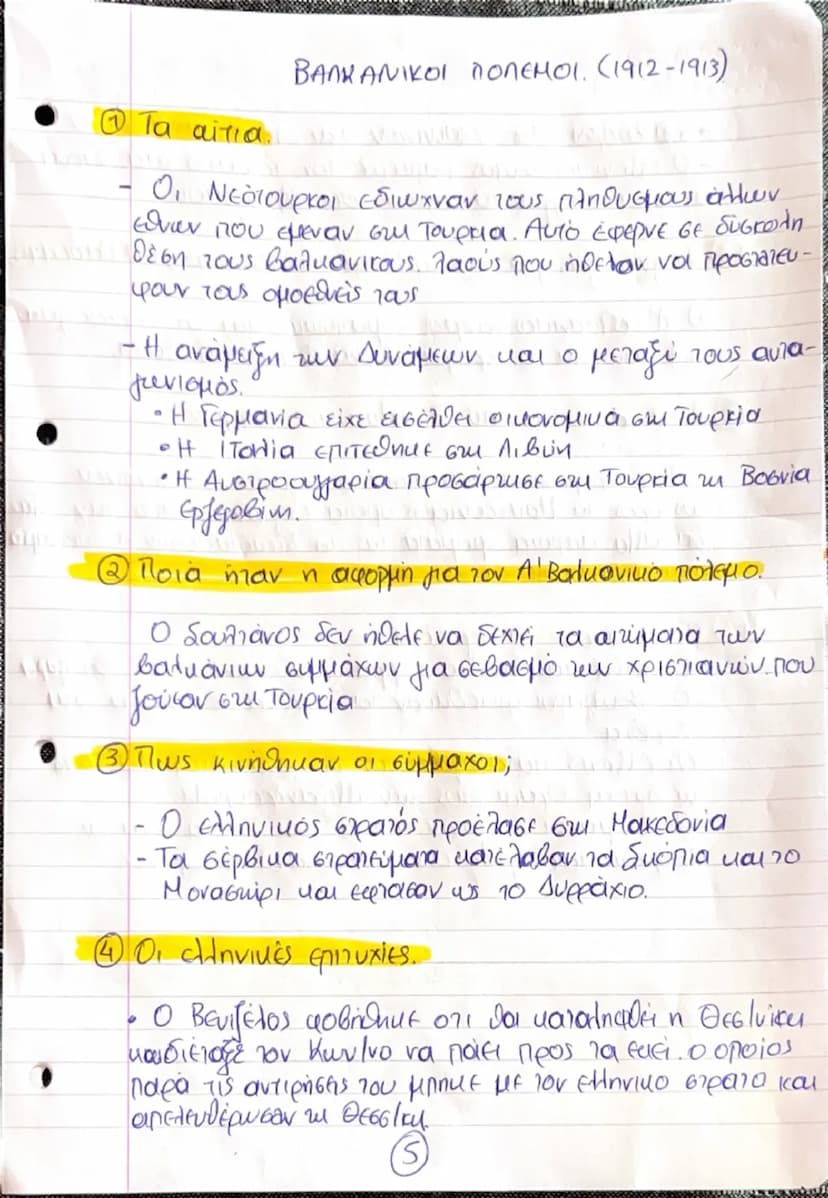 ΒΑΛΚΑΝΙΚΟΙ ΠΟΛΕΜΟΙ. (1912-1913)
① Τα αίτια.
- Οι Νεότουρκοι εδιωχναν τους πληθυσμους άλλων
εθνων που εμεναν στη Τουρκια. Αυτό έφερνε σε δύσκολη
θέση τους βαλκανικους λαούς που ήθελαν να προστατευ-
ψουν τους ομοεθνείς τους
- Η ανάμειξη των Δυνάμεων και ο μεταξύ τους αντα-
γωνισμός.
• Η Γερμανία είχε εισέλθει οικονομικά στη Τουρκία
• Η Ιταλία επιτέθηκε στη Λιβύη
• Η Αυστροουγγαρία προσάρτησε στη Τουρκία τη Βοσνία
Ερζεγοβίνη.
② Ποιά ήταν η αφορμή για τον Α' Βαλκανικό πόλεμο.
Ο Σουλτάνος δεν ήθελε να δεχτεί τα αιτήματα των
βαλκάνιων συμμάχων για σεβασμό των χριστιανών που
ζούσαν στη Τουρκία
③ Πως κινήθηκαν οι σύμμαχοι;
- Ο ελληνικός στρατός προέλασε στη Μακεδονία
- Τα σέρβικα στρατεύματα κατέλαβαν τα Σκόπια και το
Μοναστήρι και εφτασαν ως το Δυρράχιο.
④ Οι ελληνικές επιτυχίες.
• Ο Βενιζέλος φοβήθηκε οτι θα καταληφθεί η Θεσ/νίκη
και διέταξε τον Κων/νο να πάει προς τα εκεί. ο οποίος
παρά τις αντιρήσης του μπηκε με τον ελληνικο στρατο και
απελευθέρωσαν τη Θεσσ/κη.
⑤